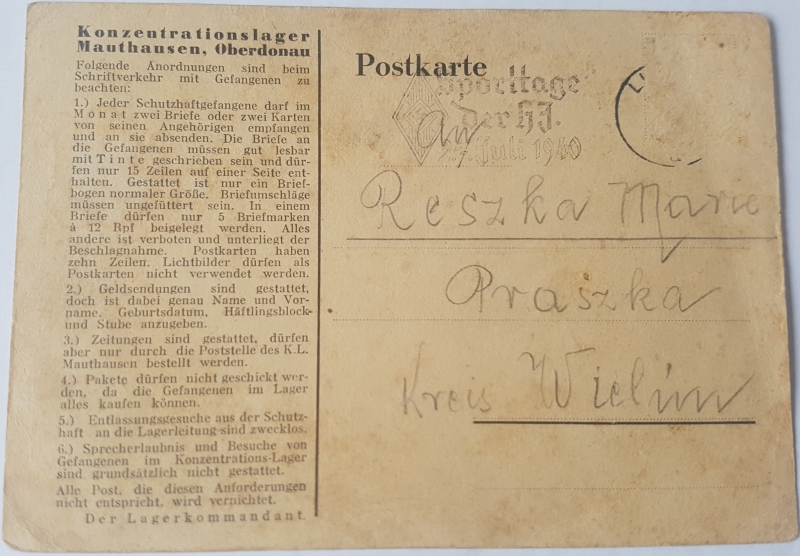 Konzentrationslager
Mauthausen, Oberdonau
Folgende Anordnungen sind beim
Schriftverkehr mit Gefangenen zu
beachten:
1.) Jeder Schutzhaftgefangene darf im
Monat zwei Briefe oder zwei Karten
von seinen Angehörigen empfangen
und an sie absenden. Die Briefe an
die Gefangenen müssen gut lesbar
mit Tinte geschrieben sein und dür-
fen nur 15 Zeilen auf einer Seite ent-
halten. Gestattet ist nur ein Brief-
bogen normaler Größe. Briefumschläge
müssen ungefüttert sein. In einem
Briefe dürfen nur 5 Briefmarken
à 12 Rpf beigelegt werden. Alles
andere ist verboten und unterliegt der
Beschlagnahme. Postkarten haben
zehn Zeilen. Lichtbilder dürfen als
Postkarten nicht verwendet werden.
2.) Geldsendungen sind gestattet,
doch ist dabei genau Name und Vor-
name. Geburtsdatum, Häftlingsblock-
und Stube anzugeben.
3.) Zeitungen sind gestattet, dürfen
aber nur durch die Poststelle des K.L.
Mauthausen bestellt werden.
4.) Pakete dürfen nicht geschickt wer-
den, da die Gefangenen im Lager
alles kaufen können.
5.) Entlassungsgesuche aus der Schutz-
haft an die Lagerleitung sind zwecklos.
6.) Sprecherlaubnis und Besuche von
Gefangenen im Konzentrations-Lager
sind grundsätzlich nicht gestattet.
Alle Post, die diesen Anforderungen
nicht entspricht, wird vernichtet.
Der Lagerkommandant.
Postkarte
Sporttage
der HJ.
Juli 1940
An
Reszka Marie
Praszka
Kreis Wielun